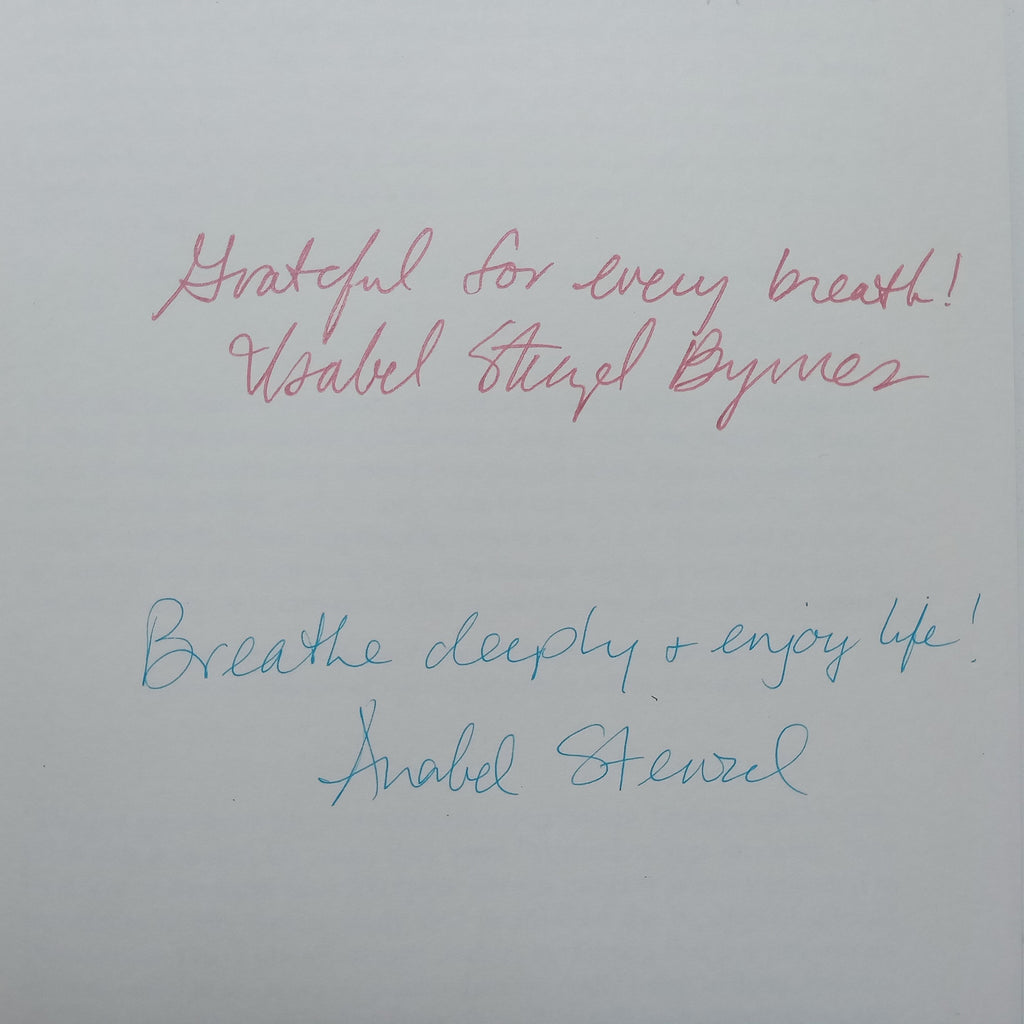 Grateful for every breath!
Isabel Stenzel Byrnes
Breathe deeply + enjoy life!
Anabel Stenzel